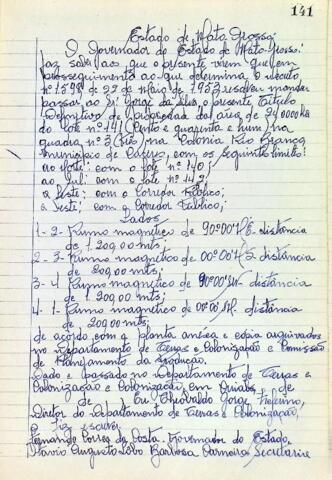 141
Estado de Mato Grosso
O Governador do Estado de Mato-Grosso:
faz saber aos que o presente virem que em
prosseguimento ao que determina o decreto
nº 1598 de 22 de Maio de 1953 resolve mandar
passar ao Sr. Jorge da Silva o presente Titulo
Definitivo de propriedade da área de 24,0000 ha
do lote nº 141 (cento e quarenta e hum) na
quadra nº 3 na Colonia Rio Branco
município de Cáceres, com os seguintes limites:
ao norte: com o lote nº 140;
ao sul: com o lote nº 142;
a Leste: com o Corredor Público;
a Oeste: com o Corredor Público;
Lados
1-2- Rumo magnético de 90º00' E. distância
de 1.200,00 mts;
2-3- Rumo magnético de 00º00' S. distância
de 200,00 mts;
3-4 Rumo magnético de 90º00' W- distância
de 1.200,00 mts;
4-1- Rumo magnético de 00º00' N. distância
de 200,00 mts;
de acordo com a planta anéxa e cópia arquivados
no Departamento de Terras e Colonização e Comissão
de Planejamento da Produção.
Dado e passado no Departamento de Terras e
Colonização e Colonização, em Cuiabá, de
de . Eu, Jorge
Diretor do Departamento de Terras e Colonização,
o fiz escrever
Fernando Corrêa da Costa. Governador do Estado,
Otavio Augusto Lobo Barbosa Carneiro, Secretário